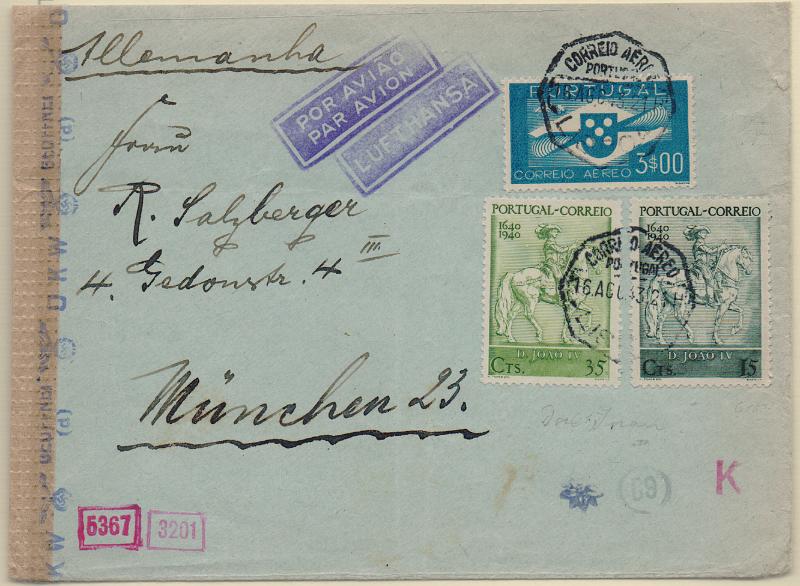 Allemanha
POR AVIÃO
PAR AVION
LUFTHANSA
CORREIO AÉREO
PORTUGAL
PORTUGAL
CORREIO AÉREO 3$00
Herrn
R. Salzberger
4. Gedonstr. 4 III
München 23.
PORTUGAL-CORREIO
1640
1940
D. JOÃO IV
CTS. 35
PORTUGAL-CORREIO
1640
1940
D. JOÃO IV
CTS. 15
CORREIO AEREO
PORTUGAL
16.AGO.43.21H
(69)
K
5367
3201
GEÖFFNET
(d)
OKW
GEÖFFNET
(d)